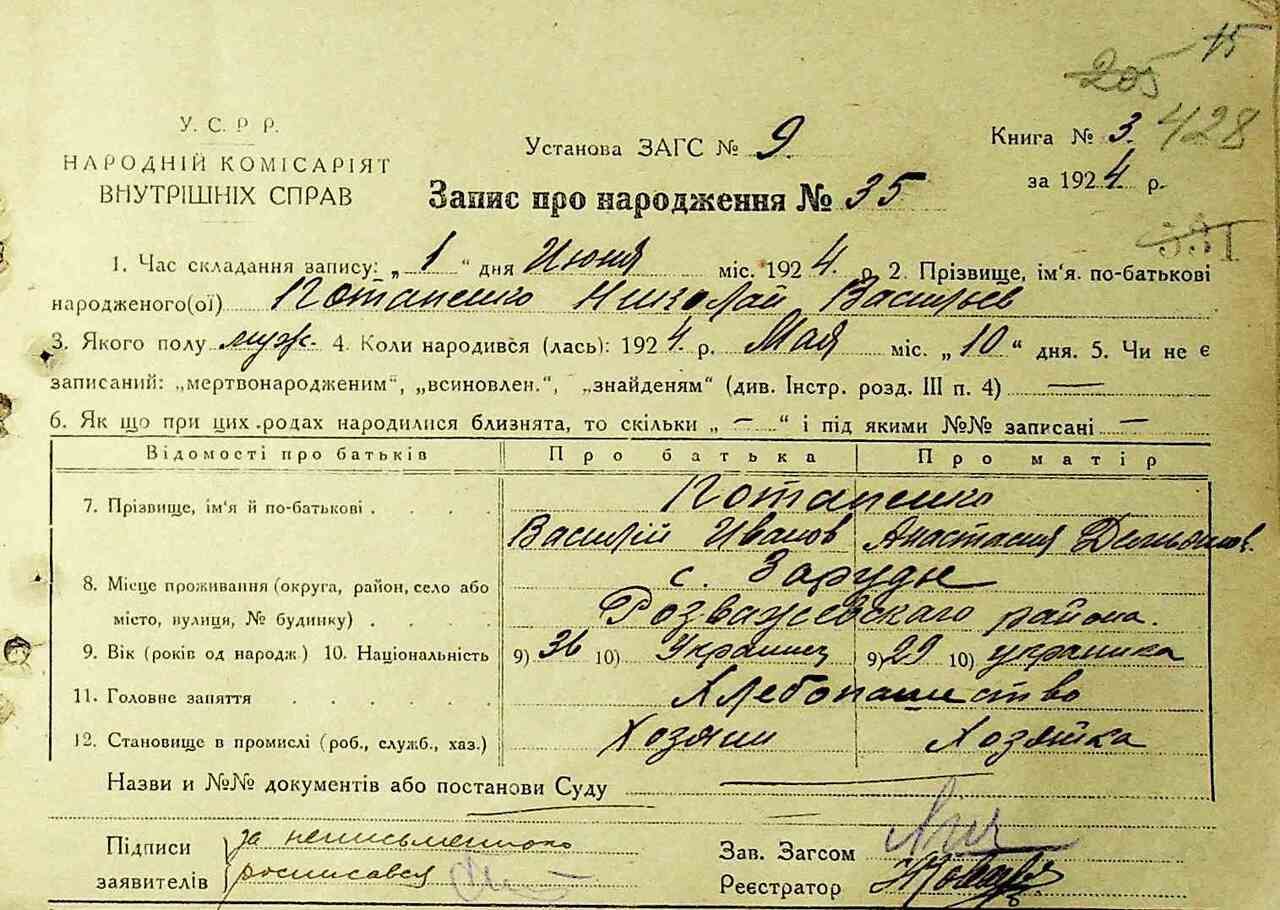 15
205
428
У. С. Р Р.
НАРОДНІЙ КОМІСАРІЯТ
ВНУТРІШНІХ СПРАВ
Установа ЗАГС № 9.
Книга № 3.
за 1924 р.
Запис про народження № 35
331
1. Час складання запису: „1“ дня Июня міс. 1924. р 2. Прізвище, ім'я. по-батькові
народженого(ої) Потапенко Николай Васильев
3. Якого полу муж. 4. Коли народився (лась): 1924. р. Мая міс. „10“ дня. 5. Чи не є
записаний: „мертвонародженим“, „всиновлен.“, „знайденям“ (див. Інстр. розд. III п. 4) —
6. Як що при цих .родах народилися близнята, то скільки „ — “ і під якими №№ записані —
Відомості про батьків Про батька Про матір
7. Прізвище, ім'я й по-батькові . . . . Потапенко
Василій Иванов Анастасия
8. Місце проживання (округа, район, село або с. Зарудье
місто, вулиця, № будинку) . . . . Розважевскаго района.
9. Вік (років од народж) 10. Національність 9) 36 10) Украинец 9) 29 10) украинка
11. Головне заняття . . . . . Хлебопашество
12. Становище в промислі (роб., служб., хаз.) Хозяин Хозяйка
Назви и №№ документів або постанови Суду —
Підписи за неписьменного
заявителів росписався
Зав. Загсом
Реєстратор